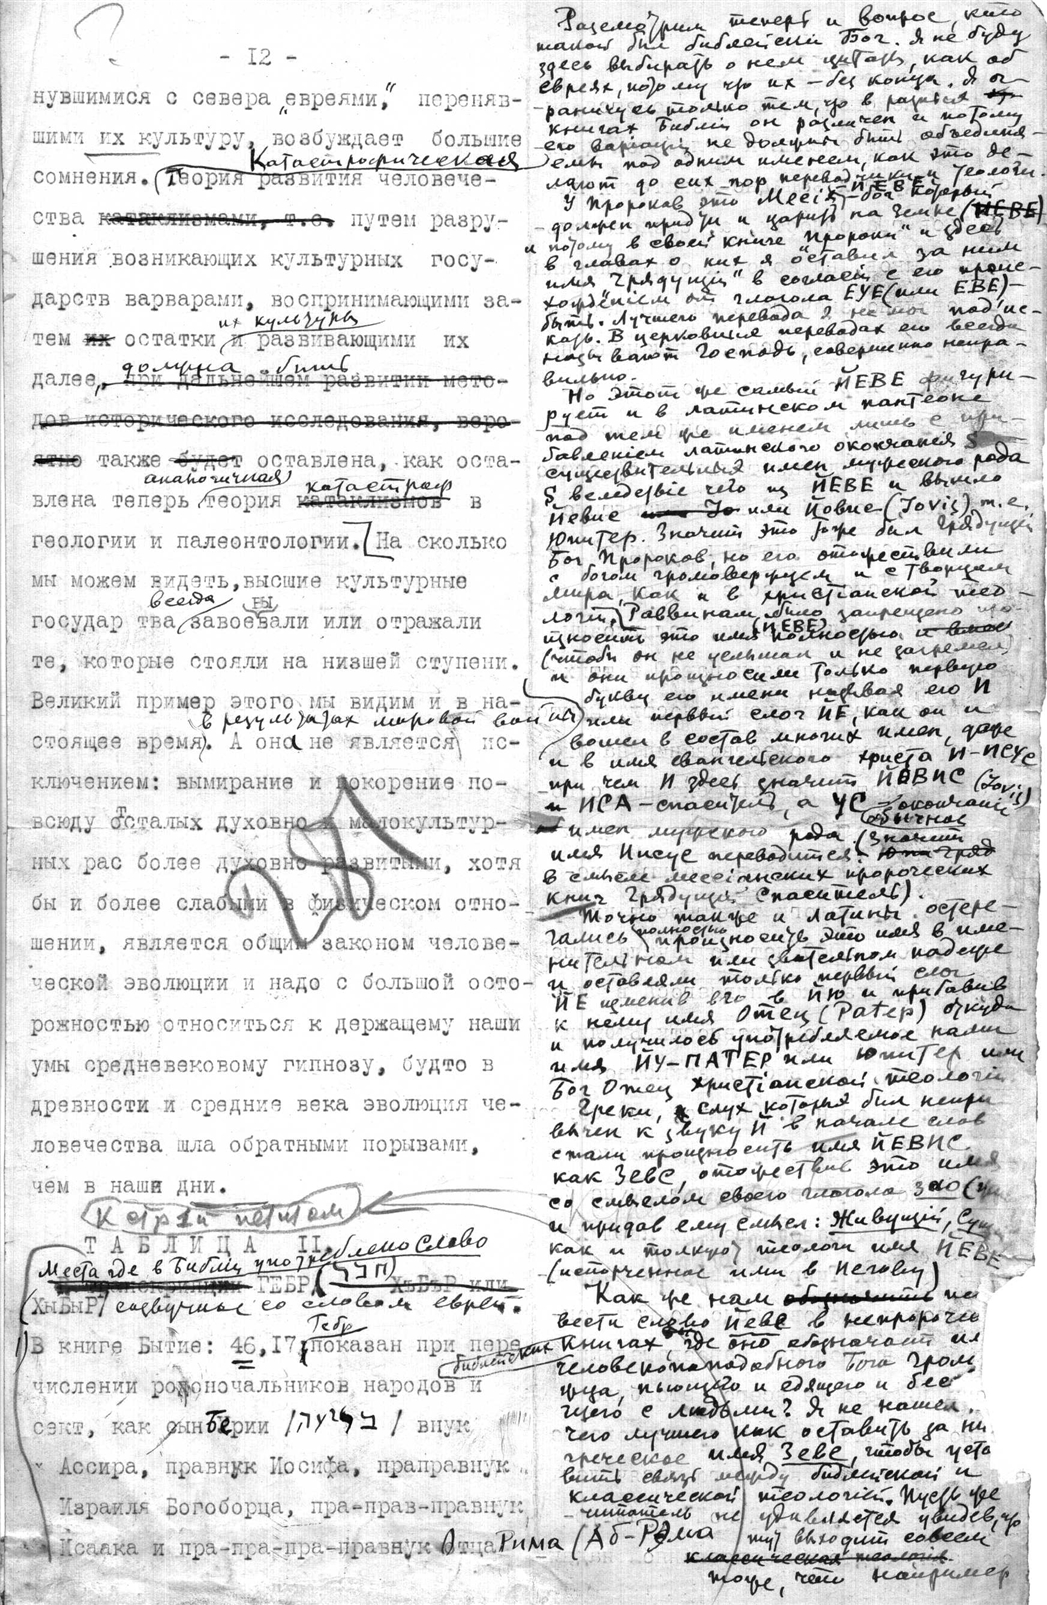 - 12 -
нувшимися с севера „евреями“, переняв-
шими их культуру, возбуждает большие
Катастрофическая
сомнения. Теория развития человече-
ства катаклизмами, т.е. путем разру-
шения возникающих культурных госу-
дарств варварами, воспринимающими за-
их культуры
тем их остатки и развивающими их
должна быть
далее, при дальнейшем развитии мето-
дов исторического исследования, веро-
ятно также будет оставлена, как оста-
аналогичная катастроф
влена теперь теория катаклизмов в
геологии и палеонтологии. [На сколько
мы можем видеть, высшие культурные
всегда вы
государ тва завоевали или отражали
те, которые стояли на низшей ступени.
Великий пример этого мы видим и в на-
в результатах мировой войны
стоящее время. А она не является ис-
ключением: вымирание и покорение по-
всюду отсталых духовно и малокультур-
ных рас более духовно развитыми, хотя
бы и более слабыми в физическом отно-
шении, является общим законом челове-
ческой эволюции и надо с большой осто-
рожностью относиться к держащему наши
умы средневековому гипнозу, будто в
древности и средние века эволюция че-
ловечества шла обратными порывами,
чем в наши дни.
281
петитом
ТАБЛИЦА II
Места где в Библии употреблено слово
ГЕБР (חבר) ХъБъР или
ХЫБЫР) созвучное со словом еврей.
Гебр
В книге Бытие: 46,17 показан при пере
числении родоночальников народов и
сект, как сын Берии /בריעה/ внук
Ассира, правнук Иосифа, праправнук
Израиля Богоборца, пра-прав-правнук
Исаака и пра-пра-пра-правнук Отца Рима (Аб-Рама
Разсмотрим теперь и вопрос, кто
такой был библейский Бог. Я не буду
здесь выбирать о нем цитаты, как об
евреях, потому что их — без конца. Я ог-
раничусь только тем, что в разных
книгах Библии он различен и потому
его вариации не должны быть объединя-
емы под одним именем, как это де-
лают до сих пор переводчики и теологи.
У Пророков это Мессия-ЙЕВЕ-бог который
должен придти и царить на земле (ЙЕВЕ)
и потому в своей книге "Пророки" и здесь
в главах о них я оставил за ним
имя "Грядущий" в согласии с его проис-
хождением от глагола ЕУЕ (или ЕВЕ) —
быть. Лучшего перевода я не мог подыс-
кать. В церковных переводах его всегда
называют Господь, совершенно непра-
вильно.
Но этот же самый ЙЕВЕ фигури-
рует и в латинском пантеоне
под тем же именем лишь с при-
бавлением латинского окончания S
существительных имен мужеского рода
S вследствие чего из ЙЕВЕ и вышло
Йевис или Йовис (Jovis) т.е.
Юпитер. Значит это тоже был Грядущий
Бог Пророков, но его отожествили
с богом громовержцем и с Творцом
мира, как и в христианской тео-
логии. Раввинам было запрещено про-
(ЙЕВЕ)
износить это имя полностью
(чтобы он не услышал и не загремел)
и они произносили только первую
букву его имени называя его И
или первый слог ЙЕ, как он и
вошел в состав многих имен, даже
и в имя евангельского христа И-ИСУС
при чем И здесь значит ЙЕВИС (Jovis)
и ИСА — спаситель, а УС — окончание
обычное
имен мужского рода (Значит
имя Иисус переводится
в смысле мессианских пророческих
книг Грядущий Спаситель).
Точно также и латины остере-
полностью
гались произносить это имя в име-
нительном или звательном падеже
и оставляли только первый слог
ЙЕ изменив его в ЙЮ и прибавив
к нему имя Отец (Pater) откуда
и получилось употребляемое нами
имя ЙУ-ПАТЕР или Юпитер или
Бог Отец христианской теологии
Греки, слух которых был непри
вычен к звуку Й в начале слов
стали произносить имя ЙЕВИС
как Зевс, отожествив это имя
со смыслом своего глагола
и придав ему смысл: Живущий,
как и толкуют теологи имя ЙЕВЕ
(испорченное ими в Иегову)
Как же нам пе
вести слово Йеве в непророчес
библейских книгах, где оно обозначает
человекоподобного Бога Гром
жца, пьющего и едящего и бес
щего с людьми? Я не нашел
чего лучшего как оставить за ни
греческое имя Зевс, чтобы уста
вить связь между библейской и
классической теологией. Пусть же
читатель не удивляется увидев, что
тут выходит совсем
классическая теология
тоже, что например